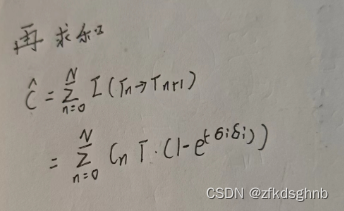 再求和
Ĉ = Σ_{n=0}^{N} I(Tn→Tn+1)
= Σ_{n=0}^{N} Cn T·(1-e^{(-δiδi)})
CSDN @zfkdsghnb